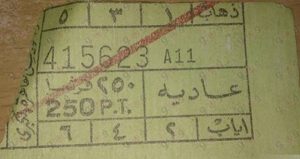 ذهاب ١ ٣ ٥
415623 A11
عادية ٢٥٠ قرشا
250 P.T.
إياب ٢ ٤ ٦